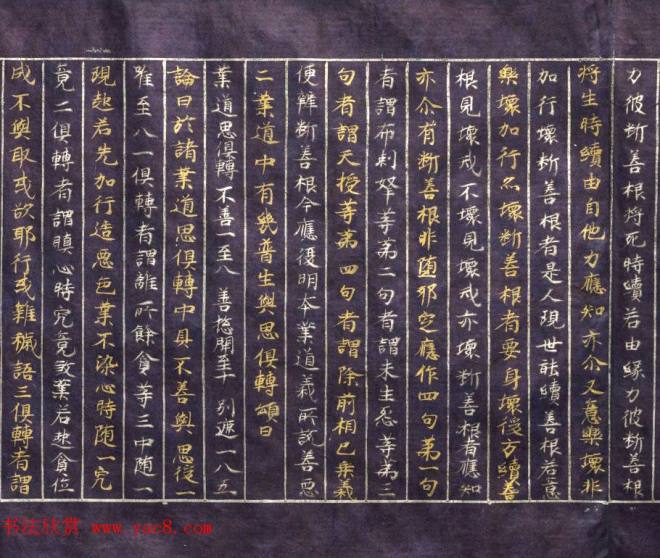 力彼断善根将死時續若由縁力彼断善根
将生時續由自他力應知亦尒又意樂壞非
加行壞断善根者是人現世能續善根若意
樂壞加行亦壞断善根者要身壞後方續善
根見壞戒不壞見壞戒亦壞断善根者應知
亦尒有断善根非堕邪定應作四句第一句
者謂布剌拏等第二句者謂未生怨等第三
句者謂天授等第四句者謂除前相已乗義
便辯断善根今應復明本業道義所説善惡
二業道中有幾並生與思俱轉頌曰
業道思俱轉 不善一至八 善揔開至十 别遮一八五
論曰於諸業道思俱轉中且不善與思從一
唯至八一俱轉者謂離所餘貪等三中随一
現起若先加行造惡色業不染心時随一究
竟二俱轉者謂瞋心時究竟煞業若起貪位
成不與取或欲耶行或雜穢語三俱轉者謂
书法欣赏 www.yac8.com